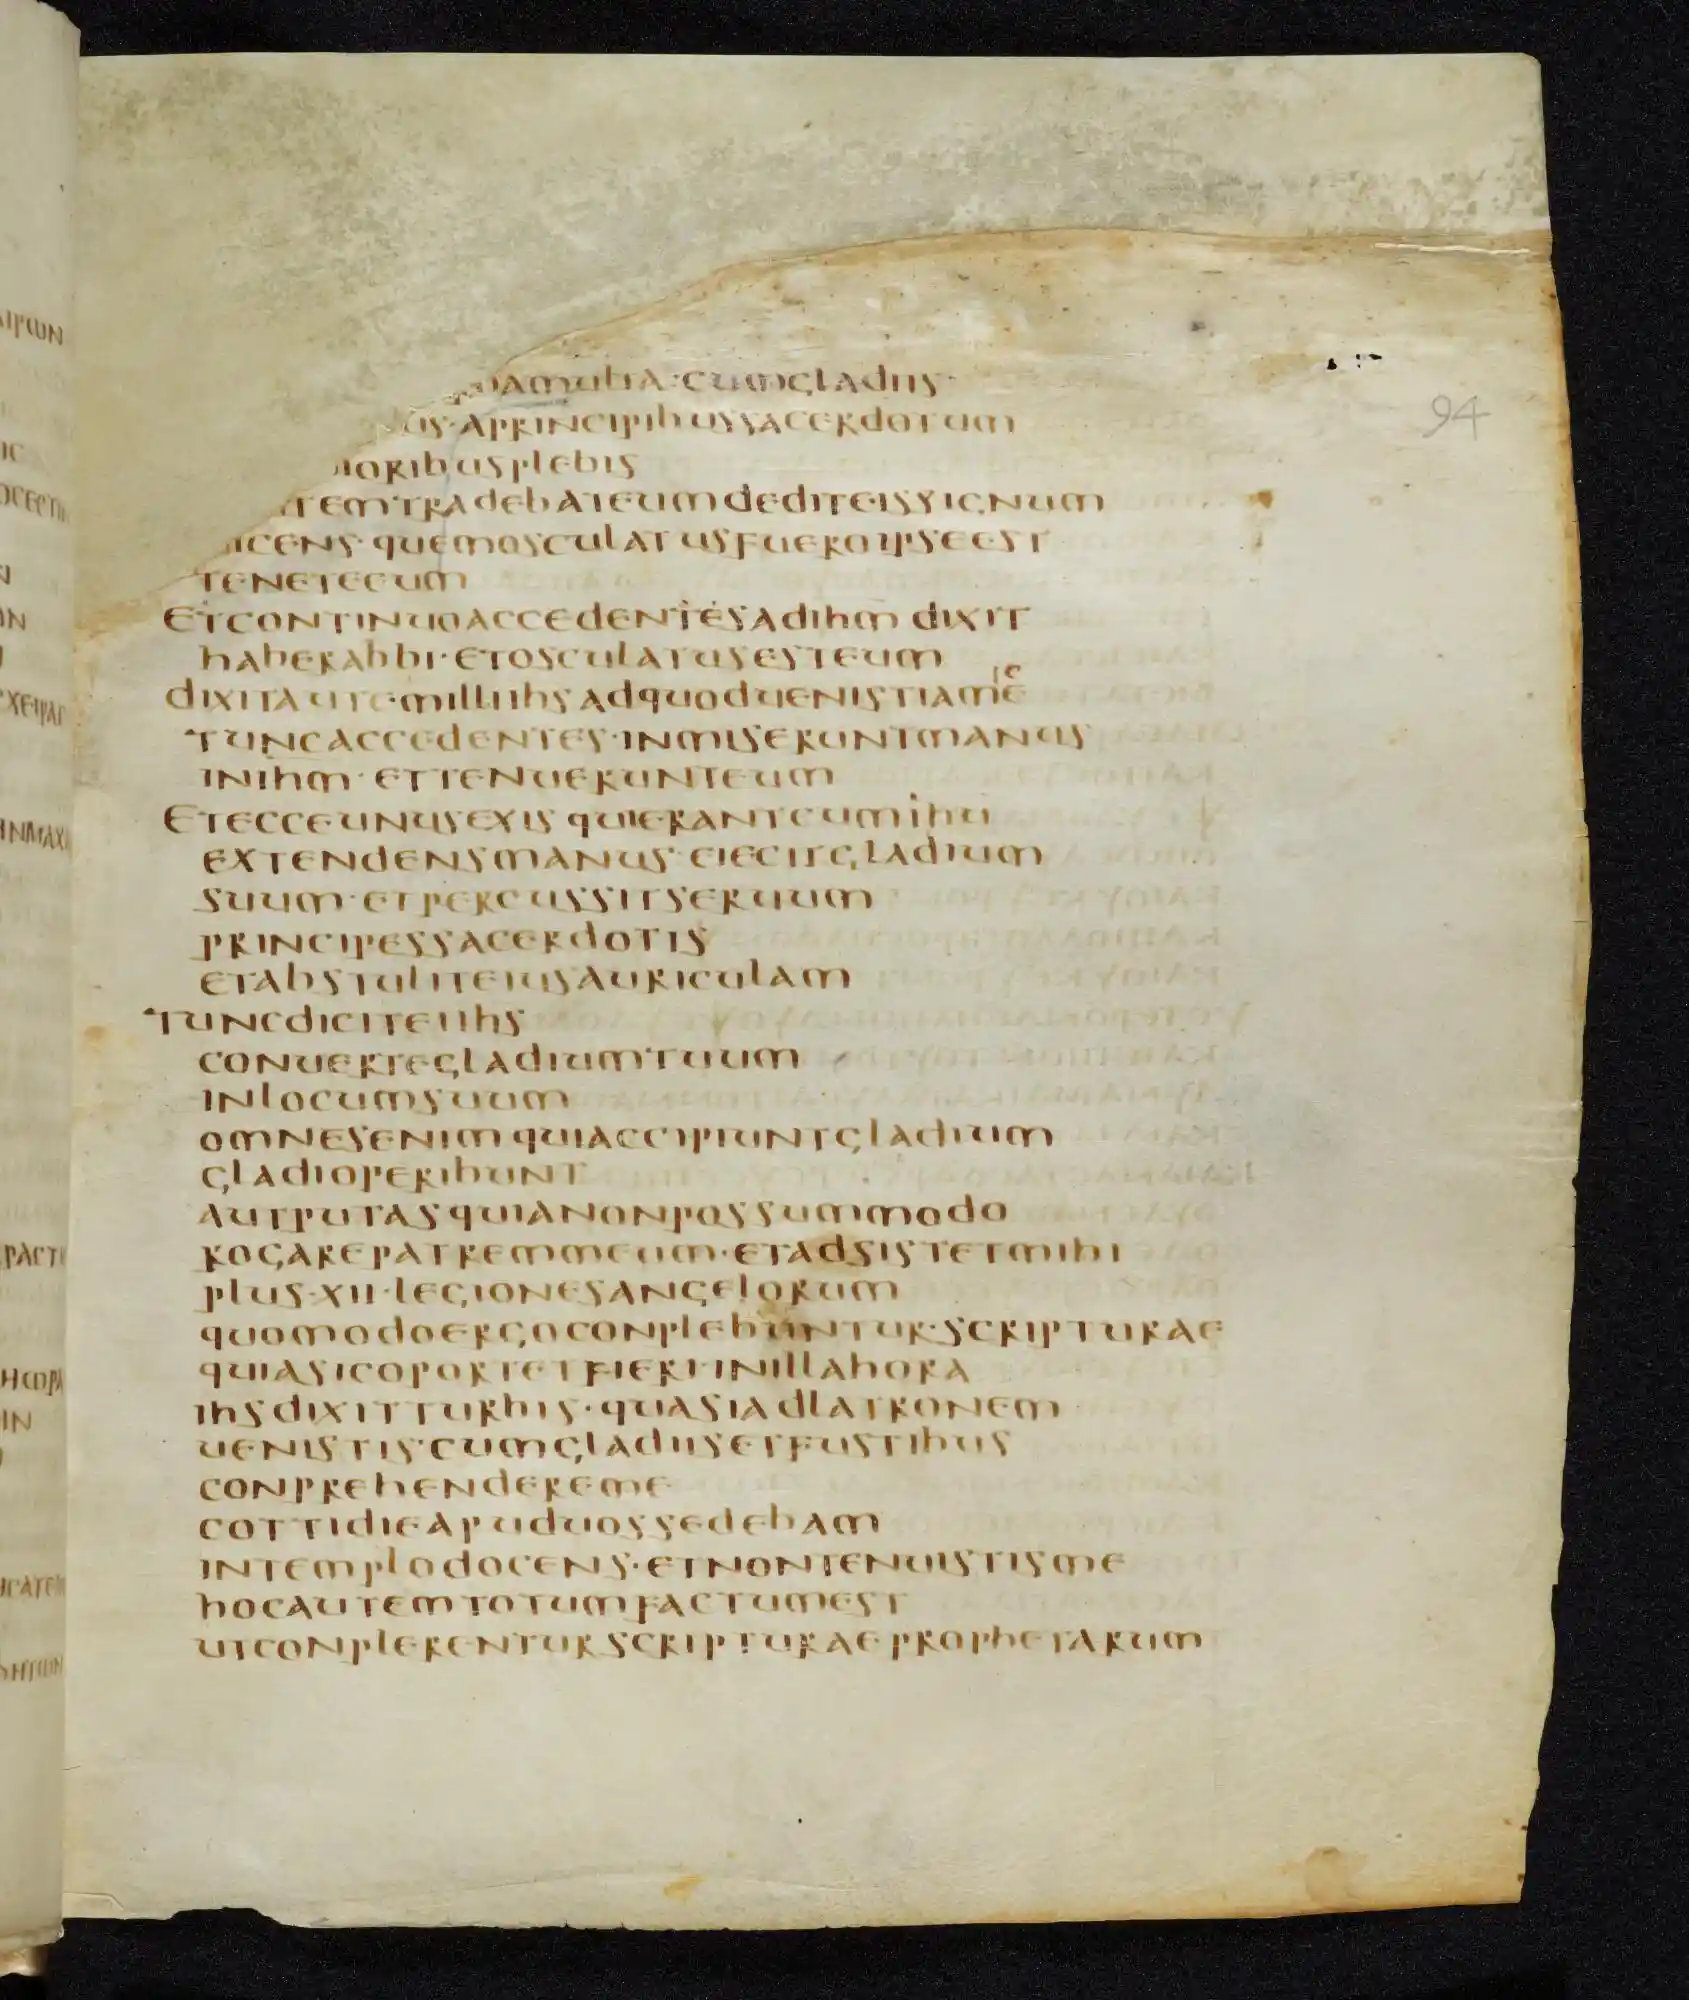 amulta·cumgladiis·
us·aprincipibussacerdotum
ioribusplebis
temtradebateumdediteissignum
icens·quemosculatusfueroipseest
teneteeum
etcontinuoaccedentesadihmdixit
haberabbi·etosculatusesteum
dixitautemilliihsadquoduenistiamice
tuncaccedentes·inmiseruntmanus
inihm·ettenuerunteum
etecceunusexisquierantcumihu
extendensmanus·eiecitgladium
suum·etpercussitseruum
principessacerdotis
etabstuliteiusauriculam
tuncdiciteiihs
conuertegladiumtuum
inlocumsuum
omnesenimquiaccipiuntgladium
gladioperibunt
autputasquianonpossummodo
rogarepatremmeum·etadsistetmihi
plus·xii·legionesangelorum
quomodoergoconplebuntur·scripturae
quiasicoportetfieri·inillahora
ihsdixitturbis·quasiadlatronem
uenistis·cumgladiisetfustibus
conprehendereme
cottidieapuduossedebam
intemplodocens·etnontenuistisme
hocautemtotumfactumest
utconplerenturscripturaeprophetarum
94